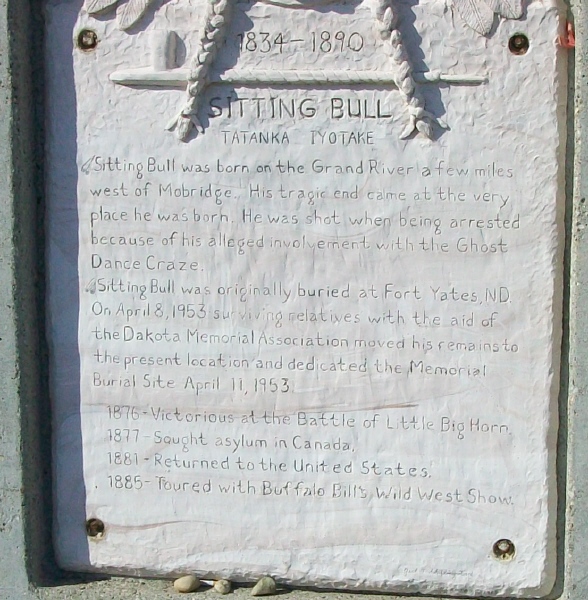 1834-1890
SITTING BULL
TATANKA IYOTAKE
Sitting Bull was born on the Grand River a few miles
west of Mobridge. His tragic end came at the very
place he was born. He was shot when being arrested
because of his alleged involvement with the Ghost
Dance Craze.
Sitting Bull was originally buried at Fort Yates, ND.
On April 8, 1953 surviving relatives with the aid of
the Dakota Memorial Association moved his remains to
the present location and dedicated the Memorial
Burial Site April 11, 1953.
1876-Victorious at the Battle of Little Big Horn.
1877-Sought asylum in Canada.
1881-Returned to the United States.
1885-Toured with Buffalo Bill's Wild West Show.